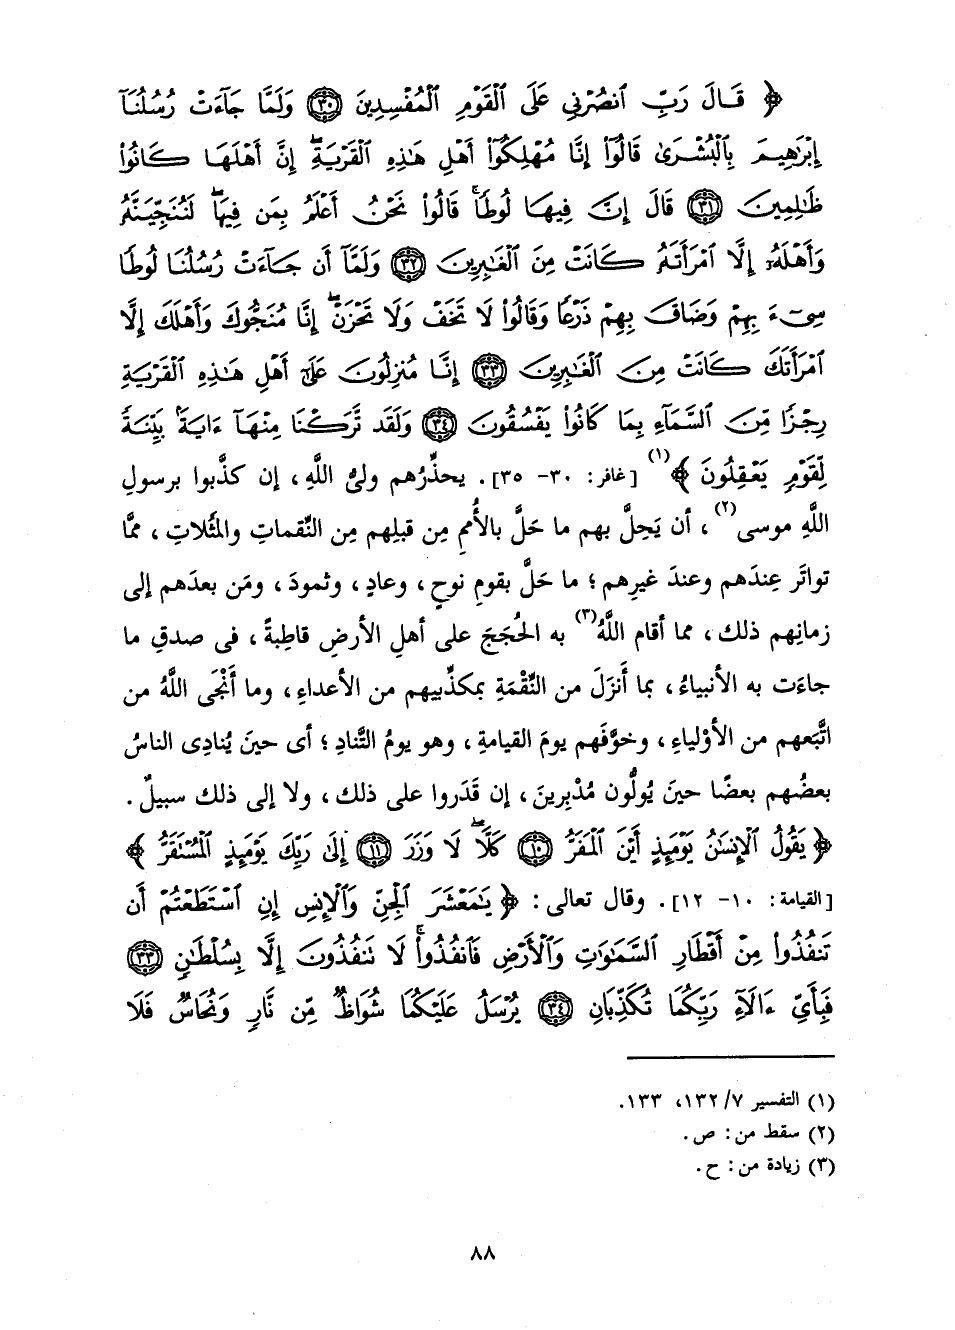 ﴿ قَالَ رَبِّ ٱنصُرْنِي عَلَى ٱلْقَوْمِ ٱلْمُفْسِدِينَ ﴿٣٠﴾ وَلَمَّا جَآءَتْ رُسُلُنَآ
إِبْرَٰهِيمَ بِٱلْبُشْرَىٰ قَالُوٓا۟ إِنَّا مُهْلِكُوٓا۟ أَهْلِ هَٰذِهِ ٱلْقَرْيَةِ ۖ إِنَّ أَهْلَهَا كَانُوا۟
ظَٰلِمِينَ ﴿٣١﴾ قَالَ إِنَّ فِيهَا لُوطًا ۚ قَالُوا۟ نَحْنُ أَعْلَمُ بِمَن فِيهَا ۖ لَنُنَجِّيَنَّهُۥ
وَأَهْلَهُۥٓ إِلَّا ٱمْرَأَتَهُۥ كَانَتْ مِنَ ٱلْغَٰبِرِينَ ﴿٣٢﴾ وَلَمَّآ أَن جَآءَتْ رُسُلُنَا لُوطًا
سِىٓءَ بِهِمْ وَضَاقَ بِهِمْ ذَرْعًا وَقَالُوا۟ لَا تَخَفْ وَلَا تَحْزَنْ ۖ إِنَّا مُنَجُّوكَ وَأَهْلَكَ إِلَّا
ٱمْرَأَتَكَ كَانَتْ مِنَ ٱلْغَٰبِرِينَ ﴿٣٣﴾ إِنَّا مُنزِلُونَ عَلَىٰٓ أَهْلِ هَٰذِهِ ٱلْقَرْيَةِ
رِجْزًا مِّنَ ٱلسَّمَآءِ بِمَا كَانُوا۟ يَفْسُقُونَ ﴿٣٤﴾ وَلَقَد تَّرَكْنَا مِنْهَآ ءَايَةًۢ بَيِّنَةً
لِّقَوْمٍ يَعْقِلُونَ ﴾(١) [غافر: ٣٠- ٣٥]. يحذِّرُهم ولىُّ اللَّهِ، إن كذَّبوا برسولِ
اللَّهِ موسى(٢)، أن يَحِلَّ بهم ما حَلَّ بالأُممِ مِن قبلِهم مِن النِّقماتِ والمَثُلاتِ، ممَّا
تواتَر عِندَهم وعندَ غيرِهم؛ ما حَلَّ بقومِ نوحٍ، وعادٍ، وثمودَ، ومَن بعدَهم إلى
زمانِهم ذلك، مما أقام اللَّهُ(٣) به الحُجَجَ على أهلِ الأرضِ قاطِبةً، فى صدقِ ما
جاءَت به الأنبياءُ، بما أَنزَلَ من النِّقْمَةِ بمكذِّبيهم من الأعداءِ، وما أَنْجَى اللَّهُ من
اتَّبَعهم من الأوْلياءِ، وخوَّفَهم يومَ القيامةِ، وهو يومُ التَّنادِ؛ أى حينَ يُنادِى الناسُ
بعضُهم بعضًا حينَ يُولُّون مُدْبِرينَ، إن قَدَروا على ذلك، ولا إلى ذلك سبيلٌ.
﴿ يَقُولُ ٱلْإِنسَٰنُ يَوْمَئِذٍ أَيْنَ ٱلْمَفَرُّ ﴿١٠﴾ كَلَّا ۖ لَا وَزَرَ ﴿١١﴾ إِلَىٰ رَبِّكَ يَوْمَئِذٍ ٱلْمُسْتَقَرُّ ﴾
[القيامة: ١٠- ١٢]. وقال تعالى: ﴿ يَٰمَعْشَرَ ٱلْجِنِّ وَٱلْإِنسِ إِنِ ٱسْتَطَعْتُمْ أَن
تَنفُذُوا۟ مِنْ أَقْطَارِ ٱلسَّمَٰوَٰتِ وَٱلْأَرْضِ فَٱنفُذُوا۟ ۚ لَا تَنفُذُونَ إِلَّا بِسُلْطَٰنٍ ﴿٣٣﴾
فَبِأَىِّ ءَالَآءِ رَبِّكُمَا تُكَذِّبَانِ ﴿٣٤﴾ يُرْسَلُ عَلَيْكُمَا شُوَاظٌ مِّن نَّارٍ وَنُحَاسٌ فَلَا
(١) التفسير ٧/ ١٣٢، ١٣٣.
(٢) سقط من: ص.
(٣) زيادة من: ح.
٨٨